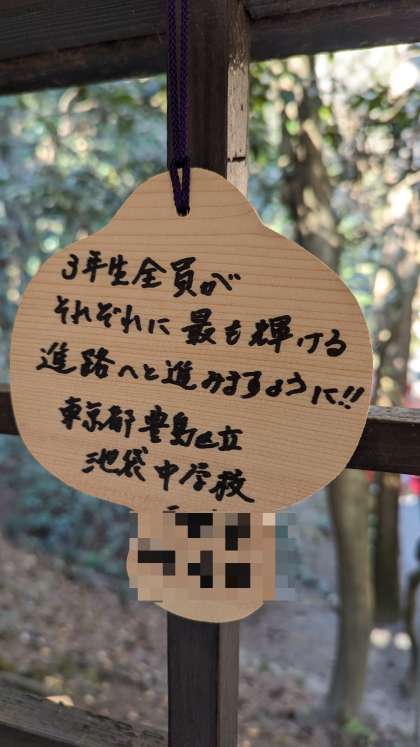 3年生全員が
それぞれに最も輝ける
進路へと進みますように!!
東京都豊島区立
池袋中学校